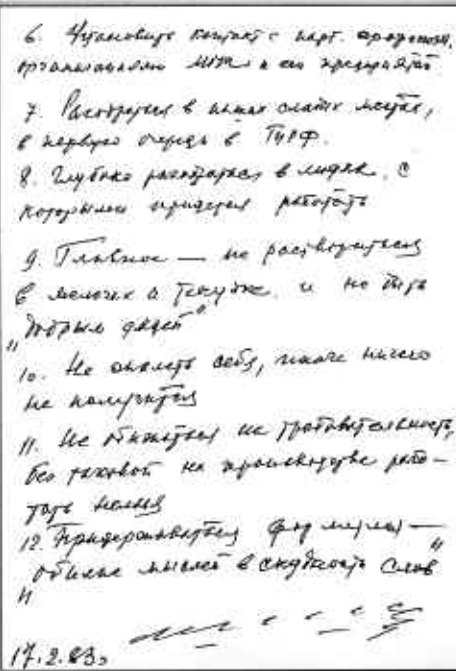 6. Установить контакт с парт. 
организациями и его предприятий
7. Разобраться в наших слабых местах,
в первую очередь в
8. Глубоко разобраться в людях, с
которыми придется работать
9. Главное — не раствориться
в мелочах и текучке и не быть
"добрым дядей"
10. Не жалеть себя, иначе ничего
не получится
11. Не обижаться на требовательность,
без таковой на производстве рабо-
тать нельзя
12. Придерживаться формулы —
"обилие мыслей в скудности слов"
17.2.83г